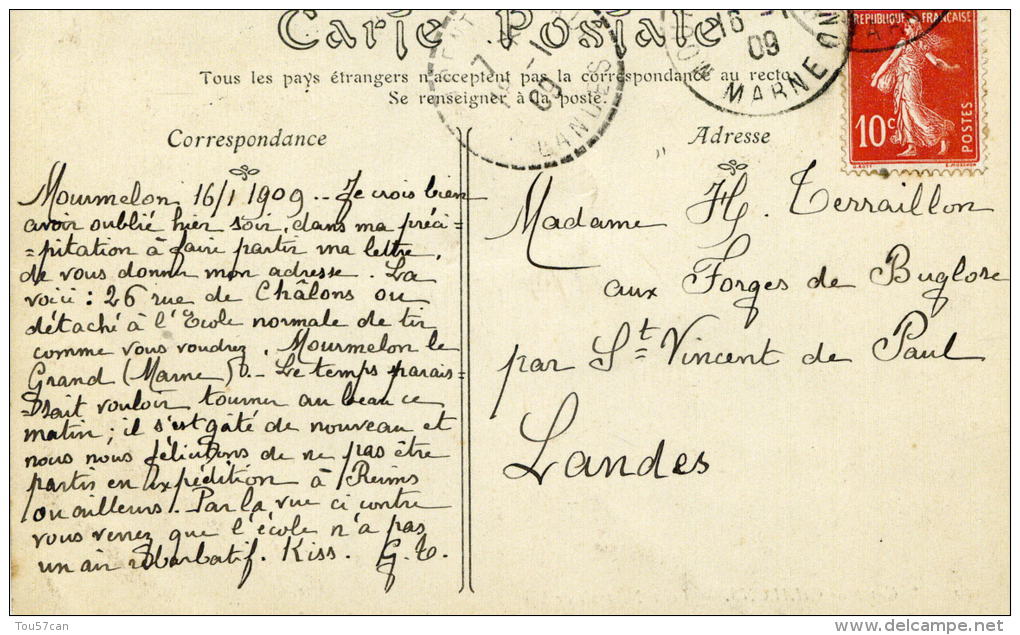 Carte Postale
Tous les pays étrangers n'acceptent pas la correspondance au recto
Se renseigner à la poste.
16
09
MARNE
7
09
LANDES
REPUBLIQUE FRANÇAISE
10c
POSTES
Correspondance
Mourmelon 16/1 1909 -. Je crois bien
avoir oublié hier soir, dans ma préci-
=pitation à faire partir ma lettre,
de vous donner mon adresse. La
voici : 26 rue de Châlons ou
détaché à l'Ecole normale de tir
comme vous voudrez. Mourmelon le
Grand (Marne). - Le temps parais=
=sait vouloir tourner au beau ce
matin; il s'est gâté de nouveau et
nous nous félicitons de ne pas être
partis en expédition à Reims
ou ailleurs. Par la vue ci contre
vous verrez que l'école n'a pas
un air rébarbatif. Kiss. G.T.
Adresse
Madame H. Terraillon
aux Forges de Buglose
par St Vincent de Paul
Landes
Tou57can
www.delcampe.net